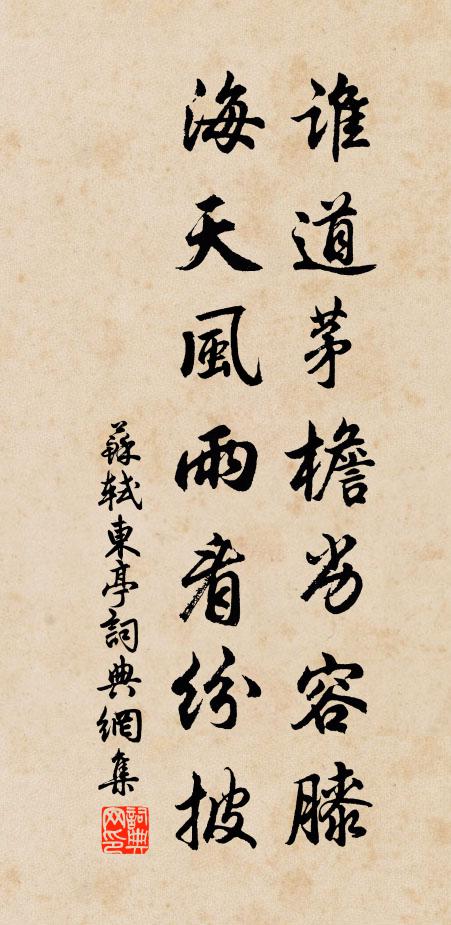 誰道茅檐劣容膝
海天風雨看紛披
蘇軾東亭詞典網集
詞典網印